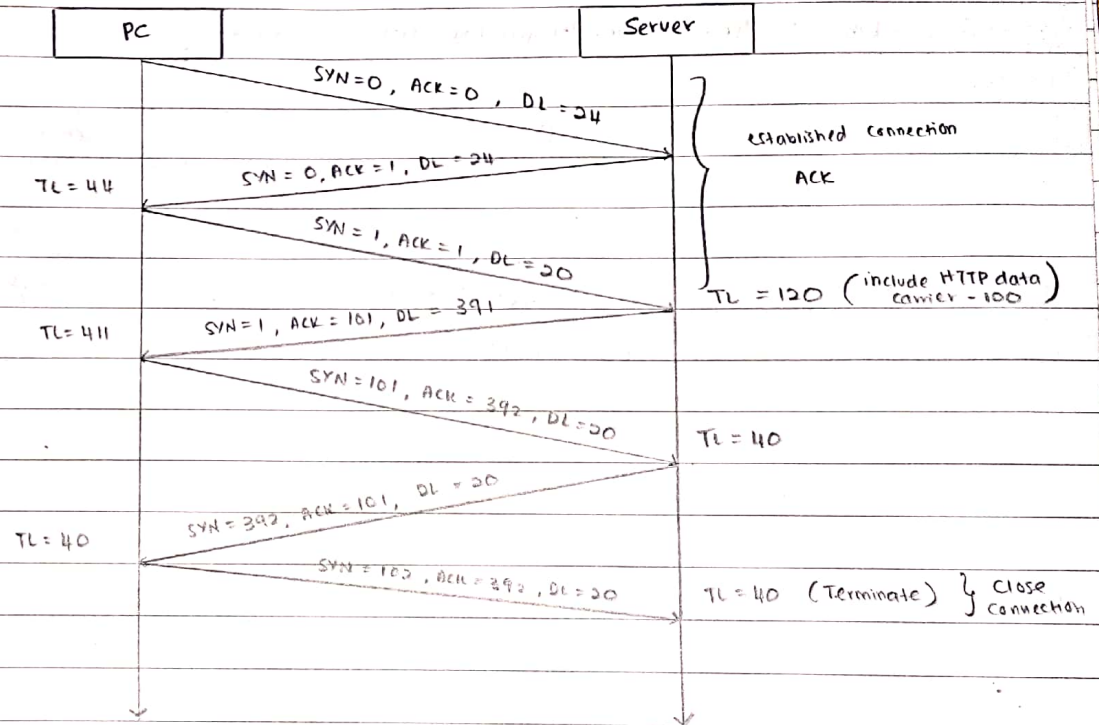 PC
Server
SYN=0, ACK=0, DL=24
established connection
ACK
SYN = 0, ACK=1, DL = 24
TL = 44
SYN = 1, ACK=1, DL=20
TL = 120 (include HTTP data
carrier - 100)
SYN=1, ACK = 101, DL = 391
TL= 411
SYN=101, ACK = 392, DL=20
TL = 40
SYN=392, ACK=101, DL = 20
TL= 40
SYN = 102, ACK = 392, DL = 20
TL = 40 (Terminate) } close
connection